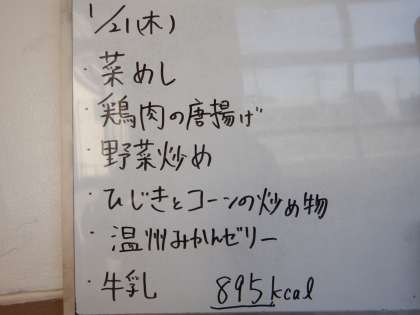 1/21(木)
・菜めし
・鶏肉の唐揚げ
・野菜炒め
・ひじきとコーンの炒め物
・温州みかんゼリー
・牛乳 895kcal